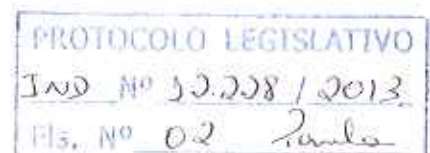 PROTOCOLO LEGISLATIVO
IND Nº 12.228 / 2013
Fls. Nº 02 Paula